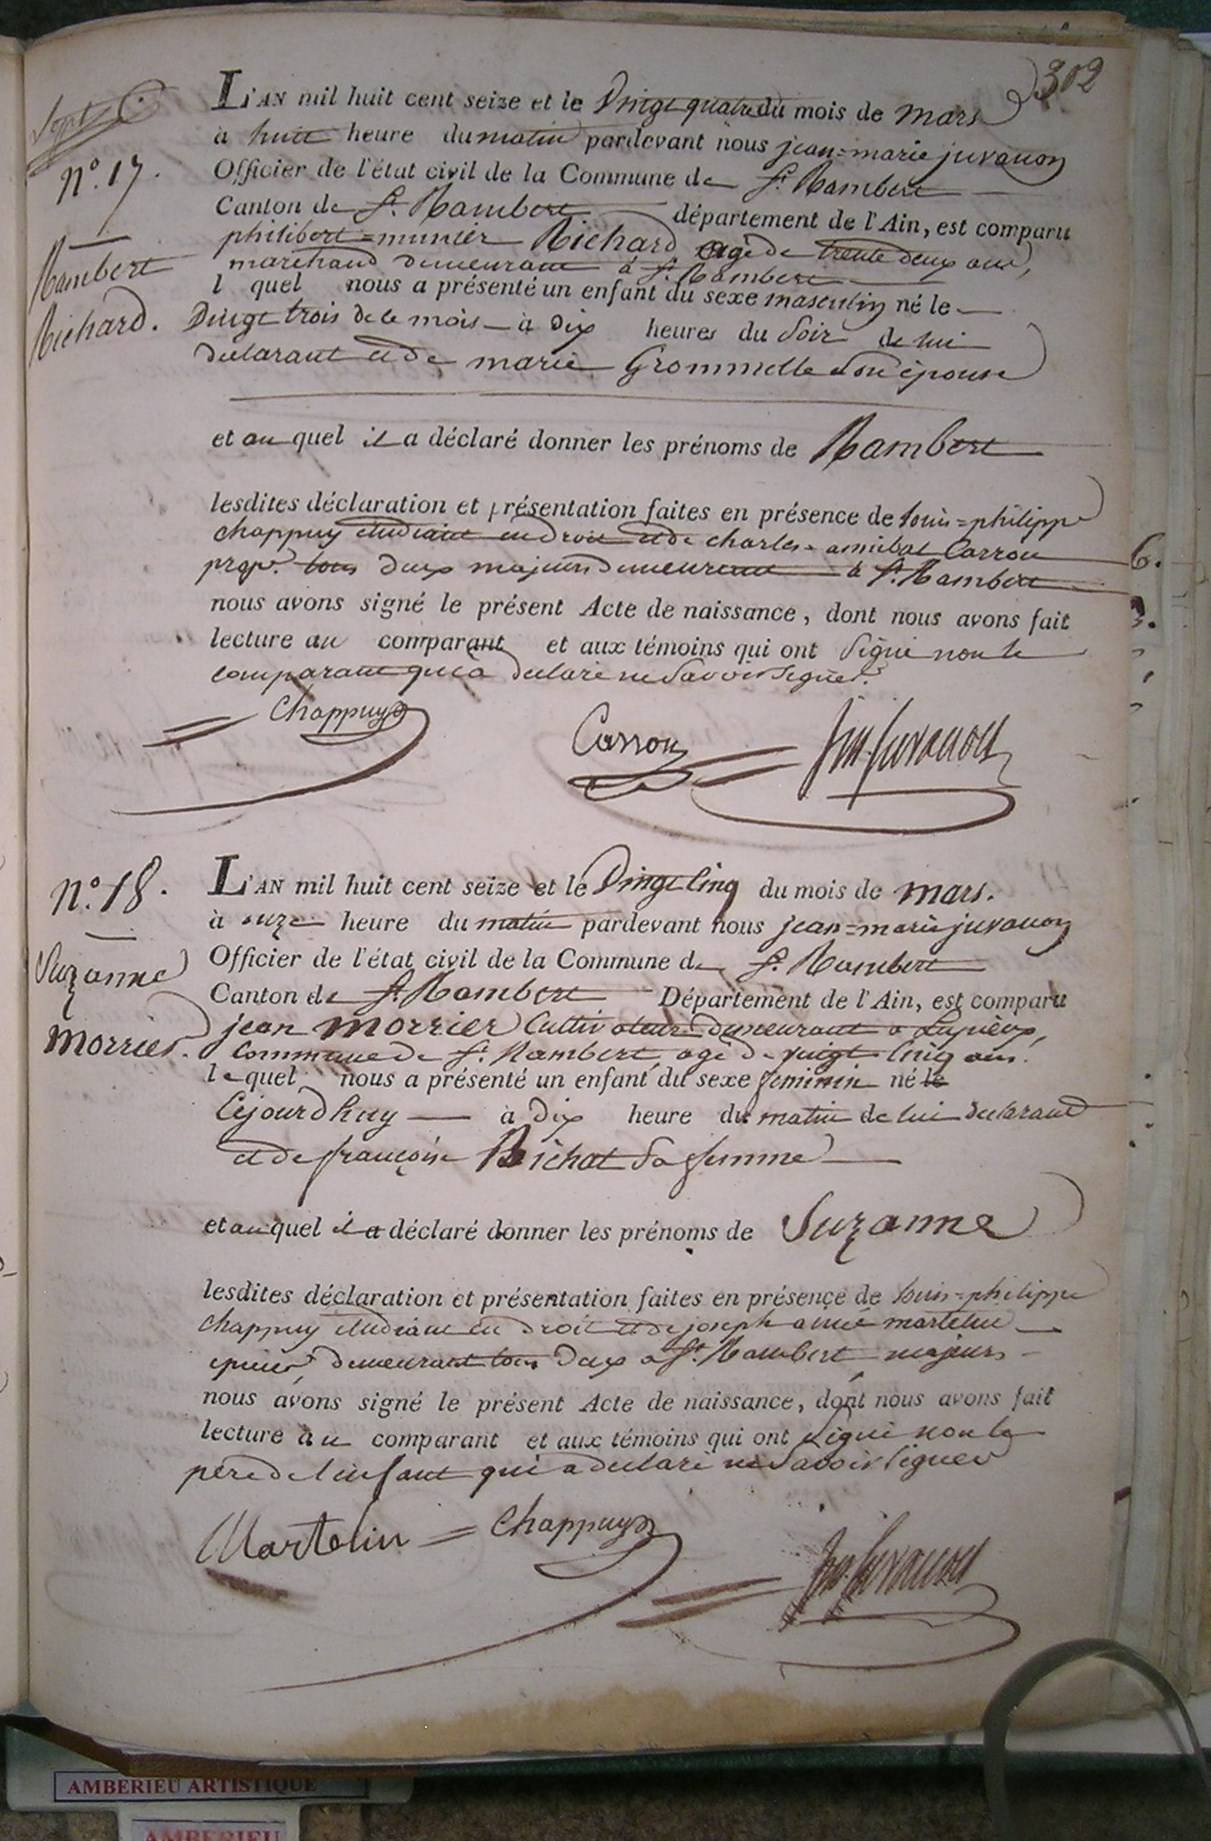 302
Sept. C.
N.° 17.
Rambert
Richard.
L'AN mil huit cent seize et le Vingt quatre du mois de mars
à huit heure du matin pardevant nous jean=marie juvanon
Officier de l'état civil de la Commune de St. Rambert
Canton de St. Rambert département de l'Ain, est comparu
philibert=munier Richard agé de trente deux ans,
marchand demeurant à St. Rambert
l quel nous a présenté un enfant du sexe masculin né le
Vingt trois de ce mois à dix heures du Soir de lui
declarant et de marie Grommelle son épouse
et au quel il a déclaré donner les prénoms de Rambert
lesdites déclaration et présentation faites en présence de louis=philippe
chappuy étudiant en droit et de charles=annibal Carron
propr. tous deux majeurs demeurant à St. Rambert
nous avons signé le présent Acte de naissance, dont nous avons fait
lecture au comparant et aux témoins qui ont Signé non le
comparant qui a declaré ne Savoir Signer.
Chappuy
Carron
Jm. Juvanon
N.° 18.
Suzanne
Morrier.
L'AN mil huit cent seize et le Vingt Cinq du mois de mars.
à onze heure du matin pardevant nous jean=marie juvanon
Officier de l'état civil de la Commune de St. Rambert
Canton de St. Rambert Département de l'Ain, est comparu
jean Morrier Cultivateur demeurant a
Commune de St. Rambert, agé de vingt Cinq ans.
le quel nous a présenté un enfant du sexe feminin né le
Cejourdhuy à dix heure du matin de lui declarant
et de françoise Bichat Sa femme
et au quel il a déclaré donner les prénoms de Suzanne
lesdites déclaration et présentation faites en présence de louis=philippe
chappuy étudiant en droit et de joseph aimé martelin
epicier demeurant tous deux a St. Rambert majeurs
nous avons signé le présent Acte de naissance, dont nous avons fait
lecture au comparant et aux témoins qui ont signé non le
père de l'enfant qui a declaré ne Savoir Signer
Martelin
Chappuy
Jm. Juvanon
6.
3.
AMBERIEU ARTISTIQUE
AMBERIEU